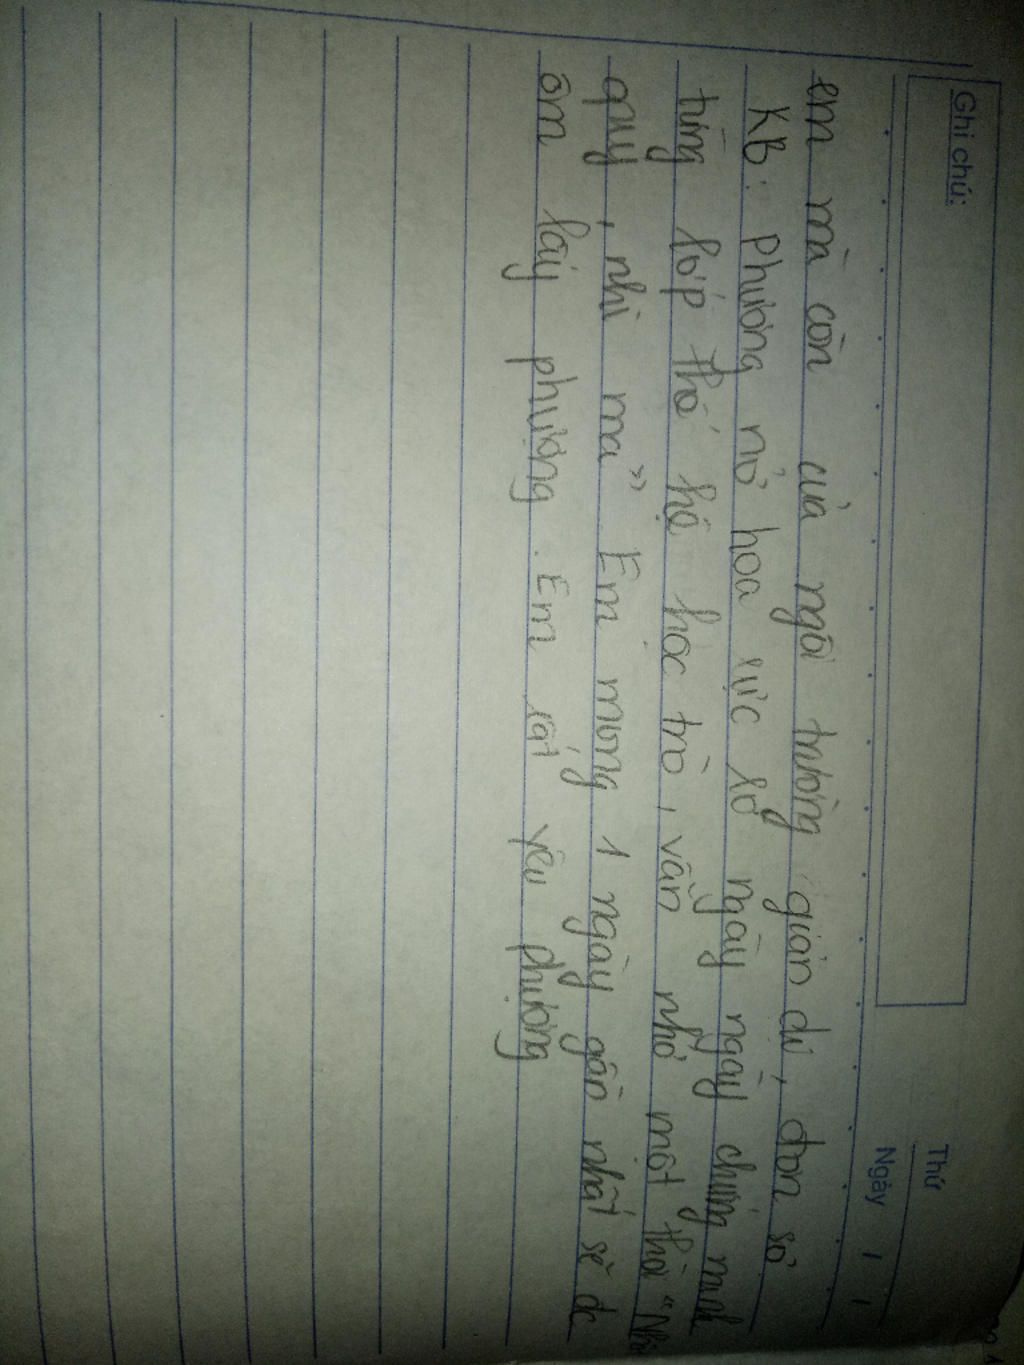 Ghi chú:
Thứ
Ngày / /
em mà còn của ngôi trường giản dị, đơn sơ
KB: Phượng nở hoa rực rỡ ngày ngày chứng minh
từng lớp thế hệ học trò, vẫn nhớ một thời "Nhất
quỷ, nhì ma". Em mong 1 ngày gần nhất sẽ đc
ôm lấy phượng. Em rất yêu phượng